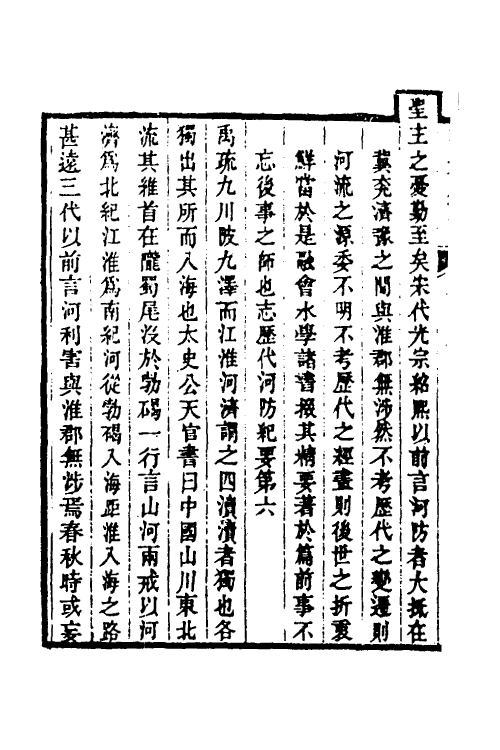 聖主之憂勤至矣宋代光宗紹熙以前言河防者大抵在
冀兗濟豫之間與淮郡無涉然不考歷代之變遷則
河流之源委不明不考歷代之經畫則後世之折衷
鮮當於是融會水學諸書掇其精要著於篇前事不
忘後事之師也志歷代河防紀要第六
禹疏九川陂九澤而江淮河濟謂之四瀆瀆者獨也各
獨出其所而入海也太史公天官書曰中國山川東北
流其維首在隴蜀尾沒於勃碣一行言山河兩戒以河
濟爲北紀江淮爲南紀河從勃碣入海距淮入海之路
甚遠三代以前言河利害與淮郡無涉焉春秋時或妄